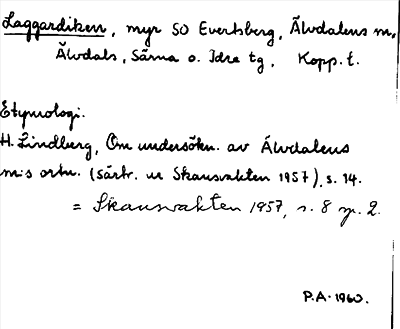 Laggardiken, myr SO Evertsberg, Älvdalens m.
Älvdals, Särna o. Idre tg, Kopp. l.
Etymologi.
H. Lindberg, Om undersökn. av Älvdalens
m:s ortn. (särtr. ur Skansvakten 1957), s. 14.
= Skansvakten 1957, s. 8 sp. 2.
P.A. 1960.